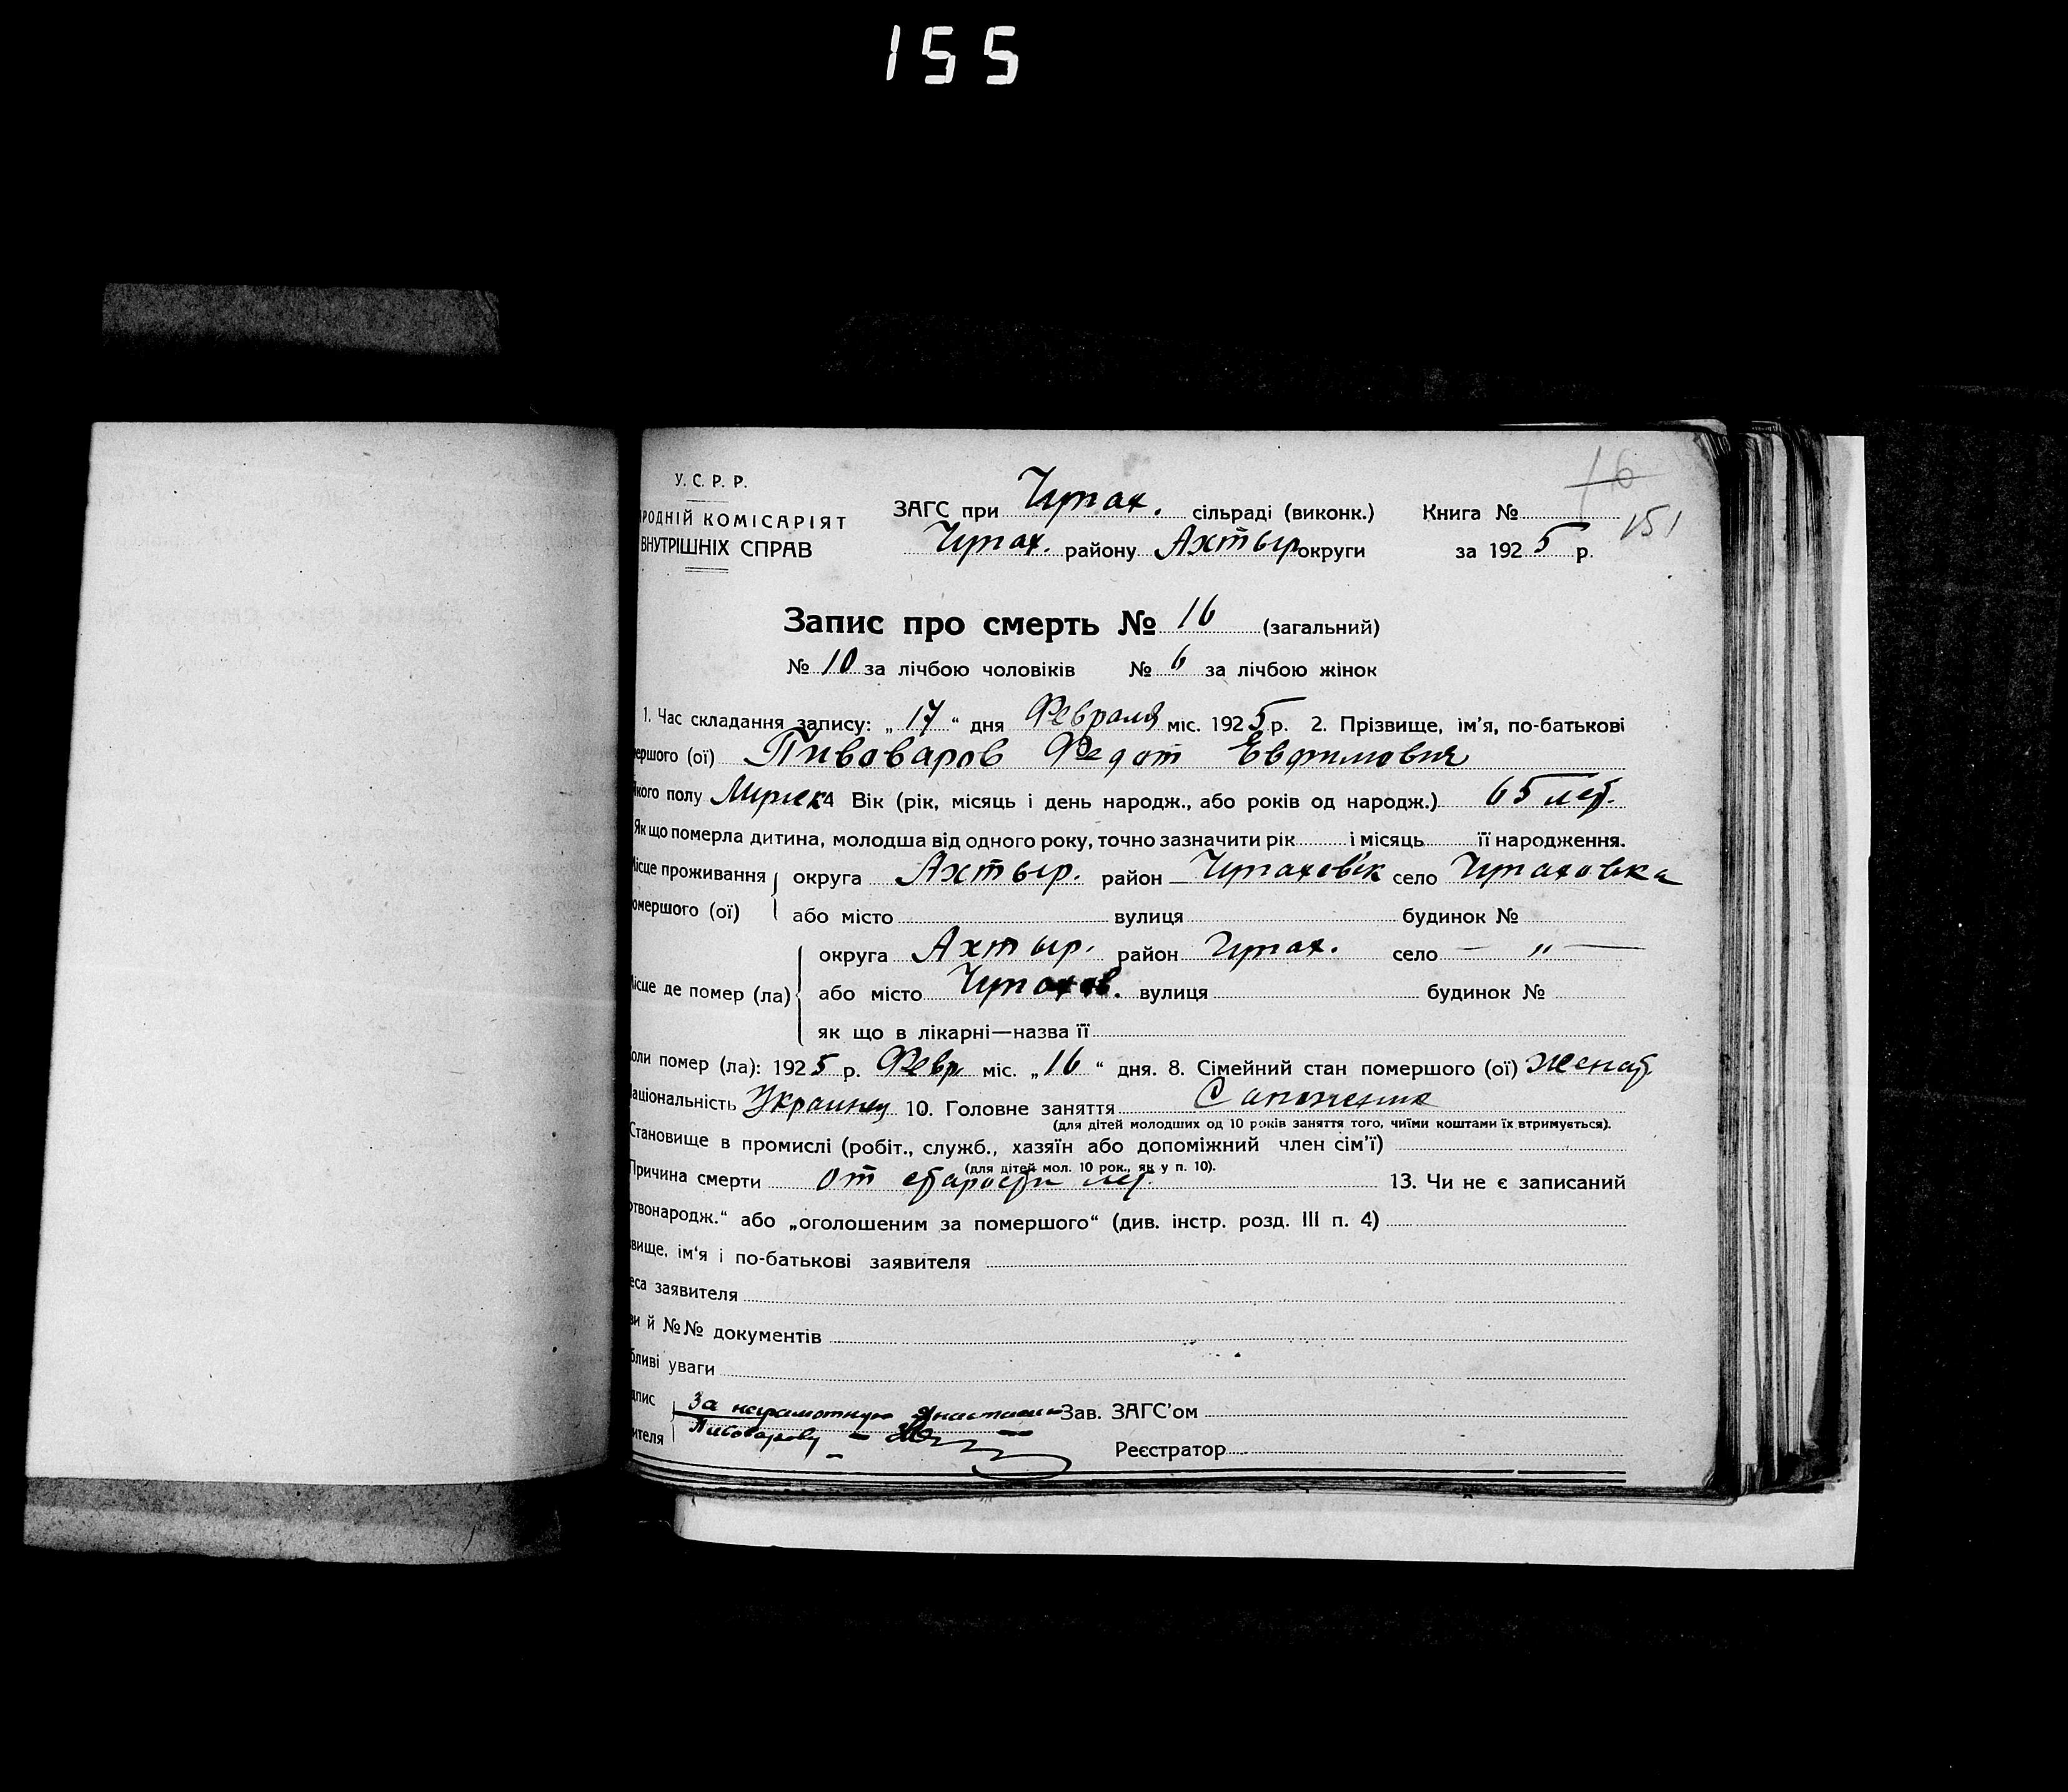 155
16
У. С. Р. Р.
РОДНІЙ КОМІСАРІЯТ
ВНУТРІШНІХ СПРАВ
ЗАГС при Чупах. сільраді (виконк.) Книга №
151
Чупах. району Ахтыр округи за 1925 р.
Запис про смерть № 16 (загальний)
№ 10 за лічбою чоловіків № 6 за лічбою жінок
1. Час складання запису: „17“ дня Февраля міс. 1925 р. 2. Прізвище, ім'я, по-батькові
ершого (ої) Пивоваров Федот Евфимович
якого полу Мужск 4 Вік (рік, місяць і день народж., або років од народж.) 65 лет.
Як що померла дитина, молодша від одного року, точно зазначити рік і місяць її народження.
Місце проживання округа Ахтыр. район Чупаховск село Чупаховка
омершого (ої) або місто вулиця будинок №
округа Ахтыр. район Чупах. село — „ —
Місце де помер (ла) або місто Чупахов. вулиця будинок №
як що в лікарні—назва її
оли помер (ла): 1925 р. Февр міс. „16“ дня. 8. Сімейний стан помершого (ої) женат
аціональність Украинец 10. Головне заняття Сапожник
(для дітей молодших од 10 років заняття того, чиїми коштами їх втримується).
Становище в промислі (робіт., служб., хазяїн або допоміжний член сім'ї)
(для дітей мол. 10 рок., як у п. 10).
Причина смерти от старости лет. 13. Чи не є записаний
ртвонародж.“ або „оголошеним за помершого“ (див. інстр. розд. III п. 4)
вище, ім'я і по-батькові заявителя
еса заявителя
ви й №№ документів
бливі уваги
дпис За неграмотную Анастасию Зав. ЗАГС'ом
Пивоварову
ителя Реєстратор